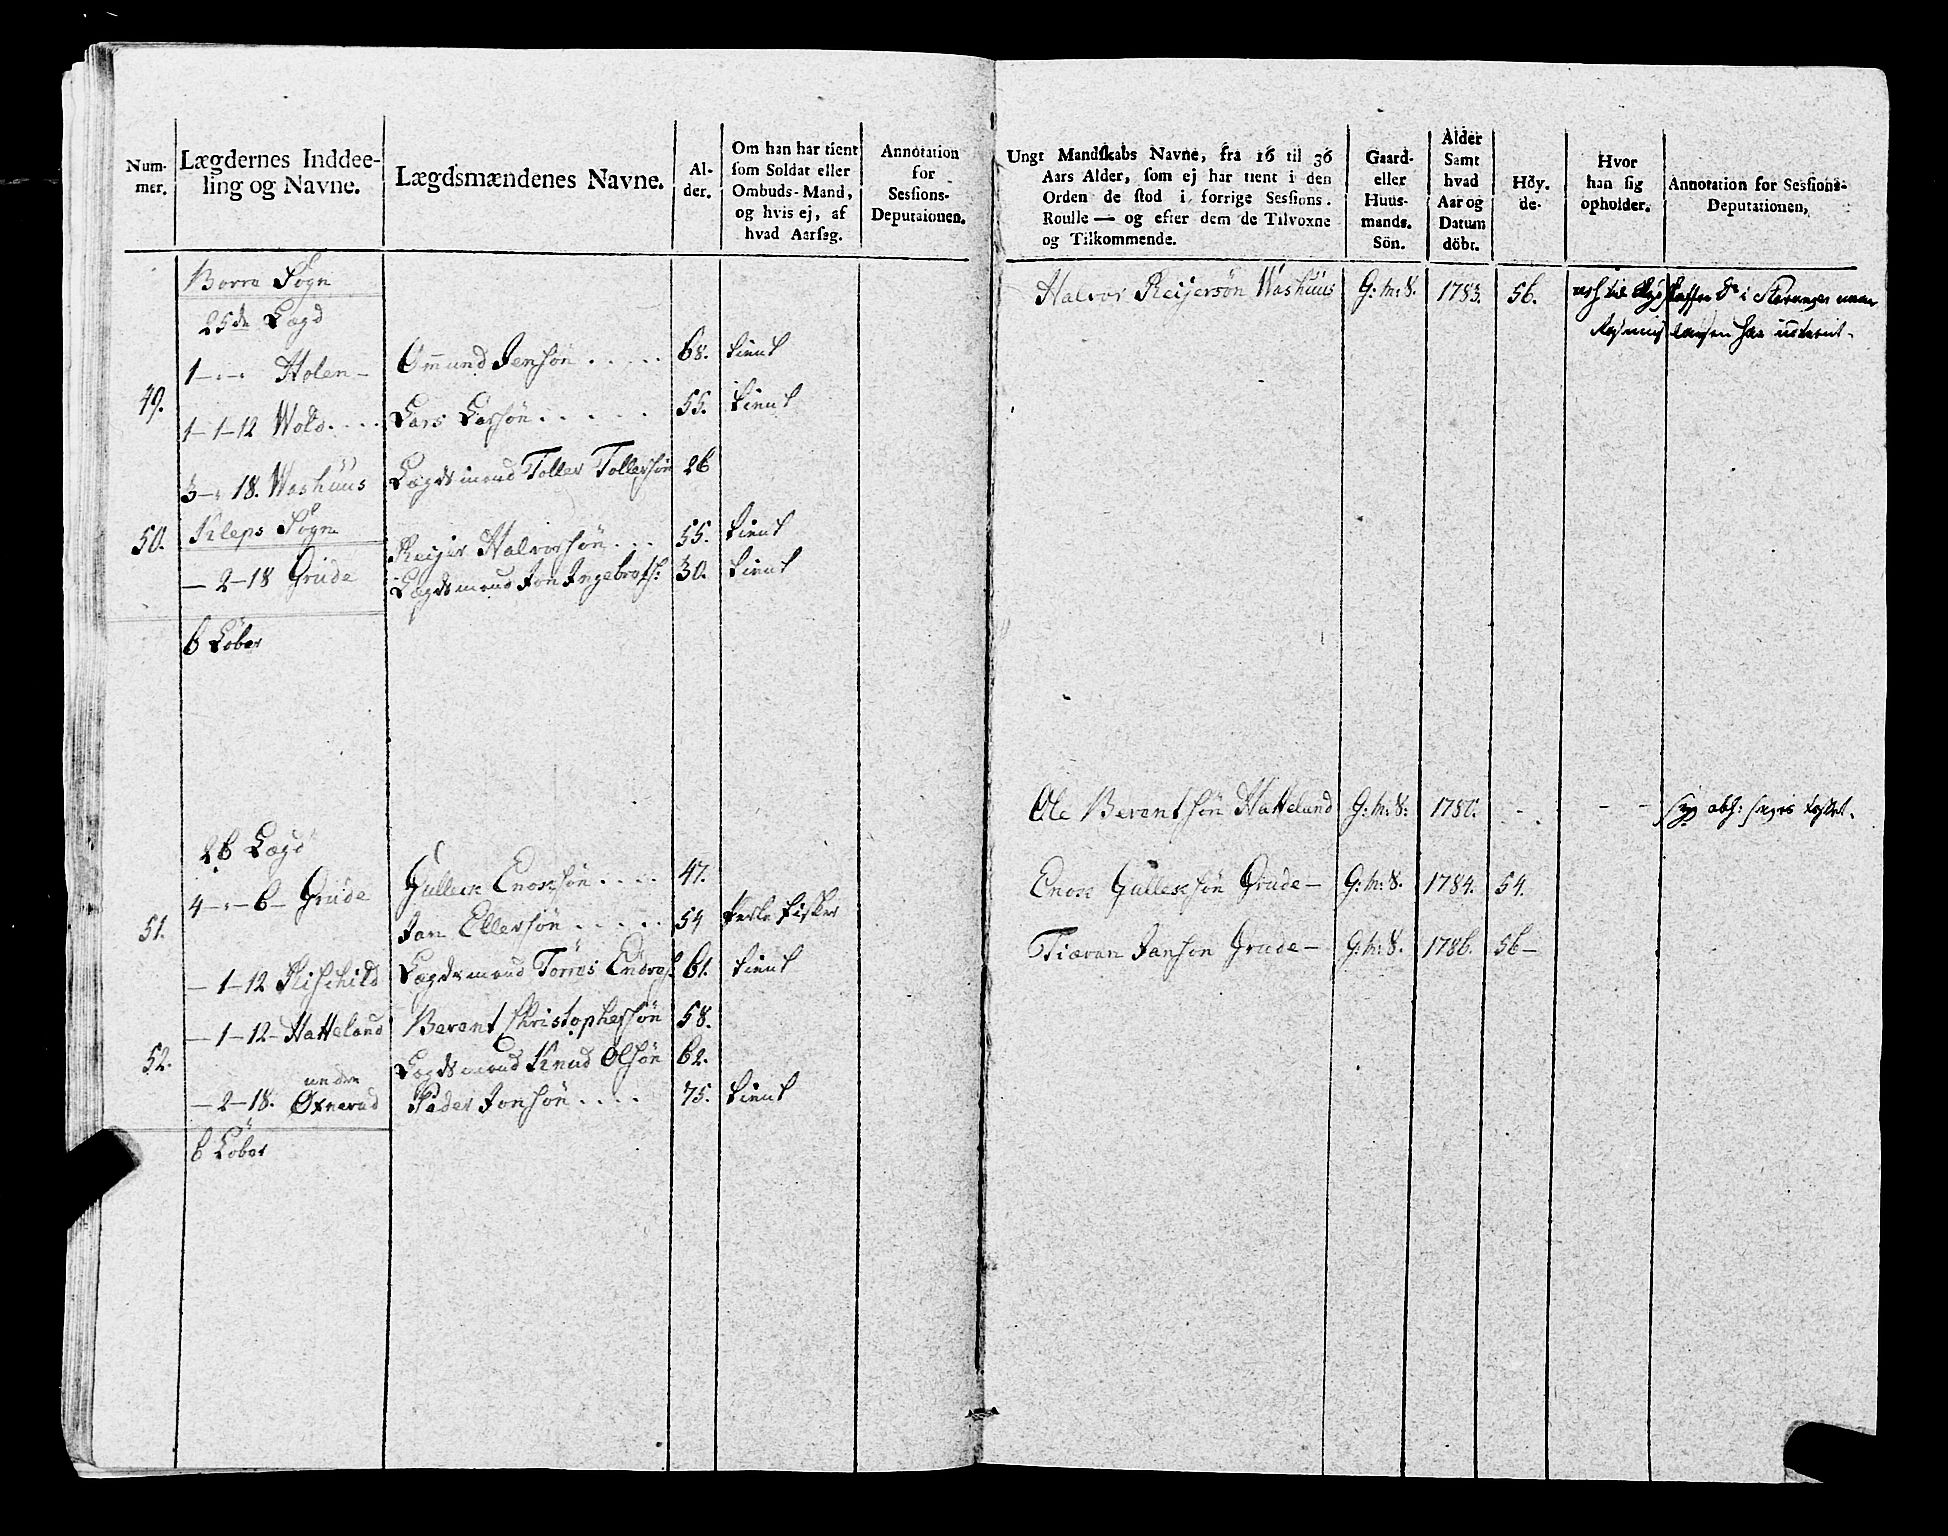 Num-
mer.
Lægdernes Inddee-
ling og Navne.
Lægdsmændenes Navne.
Al-
der.
Om han har tient
som Soldat eller
Ombuds-Mand,
og hvis ej, af
hvad Aarsag.
Annotation
for
Sessions-
Deputaionen.
Borre Sogn
25de Lægd
1 - - Holen - Ommund Jensøn . . . . . 68. tient
49.
1 - 1 - 12 Wold . . . . Lars Larsøn . . . . . 55. tient
3 - 18. Washuus Lægdsmand Toller Tollersøn 26
50. Kleps Sogn
Reijer Halvorsøn . . . 55. tient
- 2 - 18 Grude Lægdsmand Jon Ingebrets: 30. tient
6 Løber
26 Lægd
4 - - 6 - Grude Gulleck Enoksøn . . . . 47.
51. Jan Ellersøn . . . . . 54
- 1 - 12 Lægdsmand Torres Endres: 61. tient
- 1 - 12 - Hatteland Berent Christophersøn 58.
52. Lægdsmand Knud Olsøn 62.
- 2 - 18. Peder Jonsøn . . . . 75. tient
6 Løber
Ungt Mandskabs Navne, fra 16 til 36
Aars Alder, som ej har tient i den
Orden de stod i forrige Sessions.
Roulle — og efter dem de Tilvoxne
og Tilkommende.
Gaard-
eller
Huus-
mands.
Sön.
Alder
Samt
hvad
Aar og
Datum
döbt.
Höy.
de.
Hvor
han sig
opholder.
Annotation for Sessions-
Deputationen,
Halvor Reijersøn Washuus G: M: S. 1783. 56.
Ole Berentsøn Hatteland G: M: S: 1780.
Enok Gulleksøn Grude - G: M: S. 1784. 54.
Tiæran Janson Grude - G: M: S. 1786. 56 -